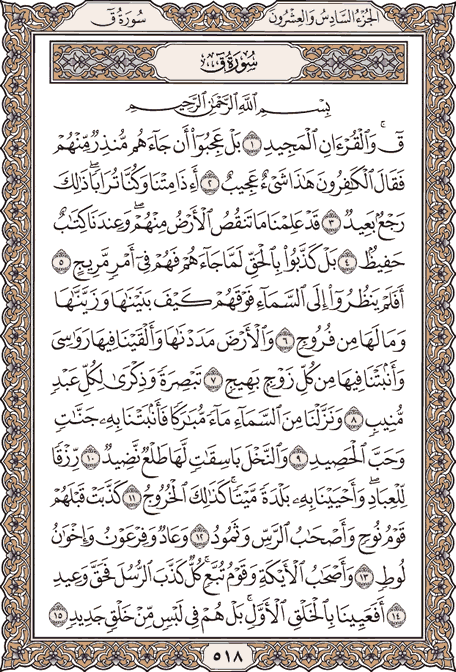 الجزء السادس والعشرون سورة ق
سورة ق
بِسْمِ ٱللَّهِ ٱلرَّحْمَٰنِ ٱلرَّحِيمِ
قٓۚ وَٱلْقُرْءَانِ ٱلْمَجِيدِ ١ بَلْ عَجِبُوٓا۟ أَن جَآءَهُم مُّنذِرٌ مِّنْهُمْ
فَقَالَ ٱلْكَٰفِرُونَ هَٰذَا شَىْءٌ عَجِيبٌ ٢ أَءِذَا مِتْنَا وَكُنَّا تُرَابًاۖ ذَٰلِكَ
رَجْعٌۢ بَعِيدٌ ٣ قَدْ عَلِمْنَا مَا تَنقُصُ ٱلْأَرْضُ مِنْهُمْۖ وَعِندَنَا كِتَٰبٌ
حَفِيظٌۢ ٤ بَلْ كَذَّبُوا۟ بِٱلْحَقِّ لَمَّا جَآءَهُمْ فَهُمْ فِىٓ أَمْرٍ مَّرِيجٍ ٥
أَفَلَمْ يَنظُرُوٓا۟ إِلَى ٱلسَّمَآءِ فَوْقَهُمْ كَيْفَ بَنَيْنَٰهَا وَزَيَّنَّٰهَا
وَمَا لَهَا مِن فُرُوجٍ ٦ وَٱلْأَرْضَ مَدَدْنَٰهَا وَأَلْقَيْنَا فِيهَا رَوَٰسِىَ
وَأَنۢبَتْنَا فِيهَا مِن كُلِّ زَوْجٍۭ بَهِيجٍ ٧ تَبْصِرَةً وَذِكْرَىٰ لِكُلِّ عَبْدٍ
مُّنِيبٍ ٨ وَنَزَّلْنَا مِنَ ٱلسَّمَآءِ مَآءً مُّبَٰرَكًا فَأَنۢبَتْنَا بِهِۦ جَنَّٰتٍ
وَحَبَّ ٱلْحَصِيدِ ٩ وَٱلنَّخْلَ بَاسِقَٰتٍ لَّهَا طَلْعٌ نَّضِيدٌ ١٠ رِّزْقًا
لِّلْعِبَادِۖ وَأَحْيَيْنَا بِهِۦ بَلْدَةً مَّيْتًاۚ كَذَٰلِكَ ٱلْخُرُوجُ ١١ كَذَّبَتْ قَبْلَهُمْ
قَوْمُ نُوحٍ وَأَصْحَٰبُ ٱلرَّسِّ وَثَمُودُ ١٢ وَعَادٌ وَفِرْعَوْنُ وَإِخْوَٰنُ
لُوطٍ ١٣ وَأَصْحَٰبُ ٱلْأَيْكَةِ وَقَوْمُ تُبَّعٍۚ كُلٌّ كَذَّبَ ٱلرُّسُلَ فَحَقَّ وَعِيدِ
١٤ أَفَعَيِينَا بِٱلْخَلْقِ ٱلْأَوَّلِۚ بَلْ هُمْ فِى لَبْسٍ مِّنْ خَلْقٍ جَدِيدٍ ١٥
٥١٨